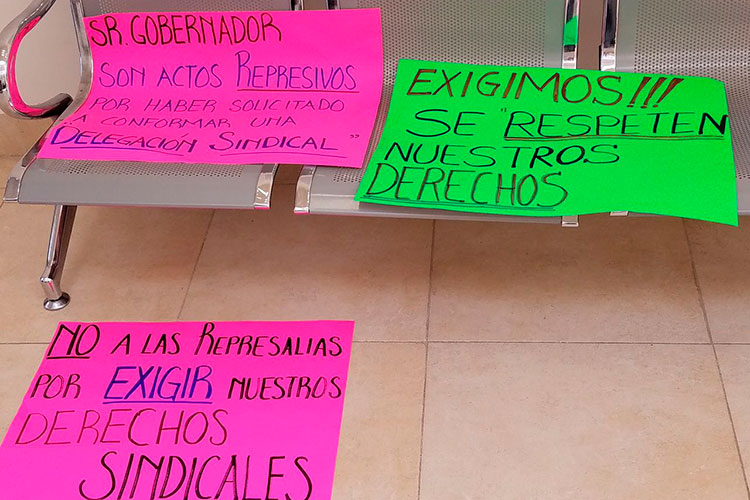 SR. GOBERNADOR
SON ACTOS REPRESIVOS
POR HABER SOLICITADO
A CONFORMAR UNA
DELEGACIÓN SINDICAL"
EXIGIMOS!!!
SE "RESPETEN
NUESTROS
DERECHOS
NO A LAS REPRESALIAS
POR EXIGIR NUESTROS
DERECHOS
SINDICALES